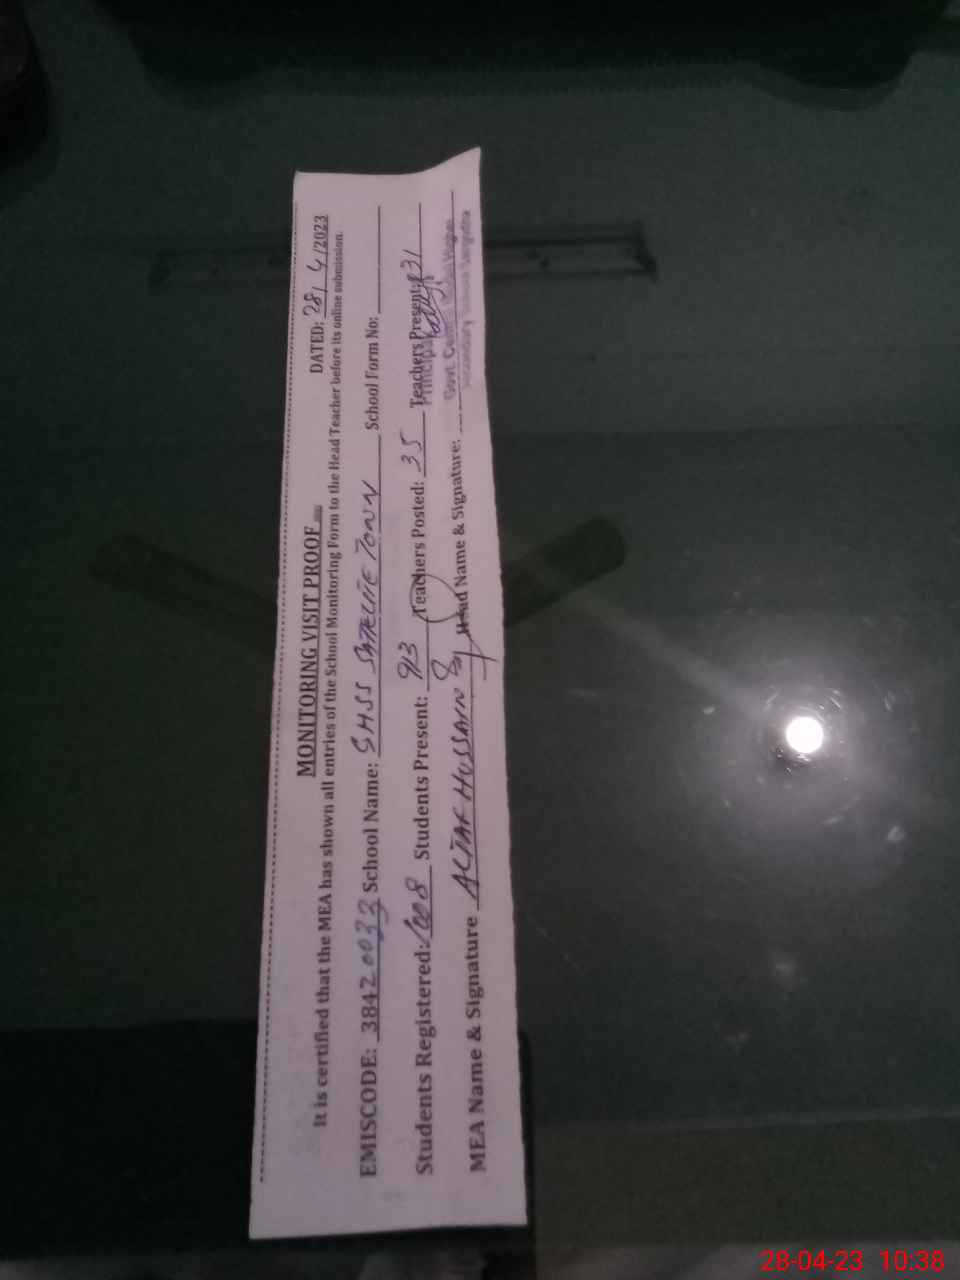 MONITORING VISIT PROOF
DATED: 28/4/2023
It is certified that the MEA has shown all entries of the School Monitoring Form to the Head Teacher before its online submission.
EMISCODE: 38420033 School Name: GHSS SATELITE TOWN School Form No:
Students Registered: 1008 Students Present: 913 Teachers Posted: 35 Teachers Present: 31
MEA Name & Signature ALTAF HUSSAIN Head Name & Signature:
Principal
Govt. Higher
Secondary School Sargodha
28-04-23 10:38